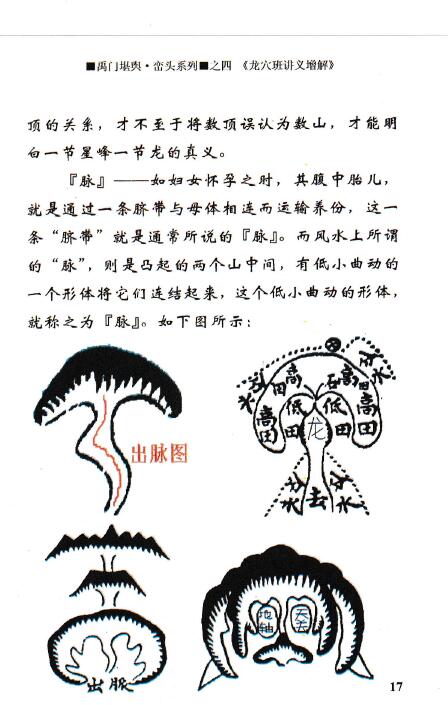 ■禹门堪舆·峦头系列■之四 《龙穴班讲义增解》
顶的关系，才不至于将数顶误认为数山，才能明
白一节星峰一节龙的真义。
『脉』——如妇女怀孕之时，其腹中胎儿，
就是通过一条脐带与母体相连而运输养份，这一
条“脐带”就是通常所说的『脉』。而风水上所谓
的“脉”，则是凸起的两个山中间，有低小曲动的
一个形体将它们连结起来，这个低小曲动的形体，
就称之为『脉』。如下图所示：
出脉图
分水
分水
高田
高田
高田
高田
低田
低田
龙
分水
去
分水
出脉
地轴
17